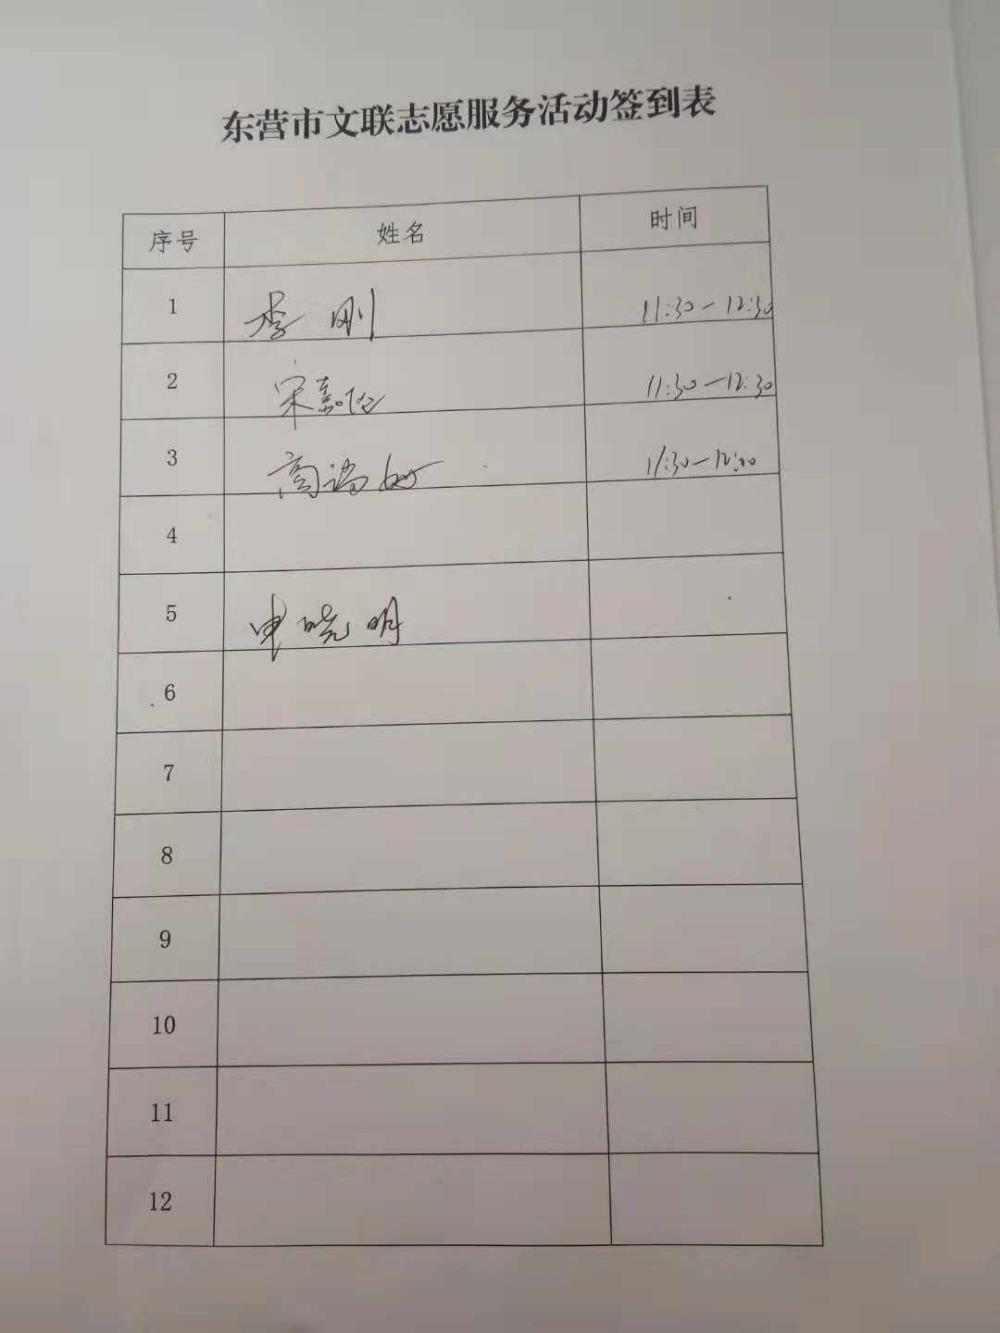 东营市文联志愿服务活动签到表
序号 姓名 时间
1 李刚 11:30-12:30
2 宋嘉 11:30-12:30
3 高瑞 11:30-12:00
4
5 申晓明
6
7
8
9
10
11
12